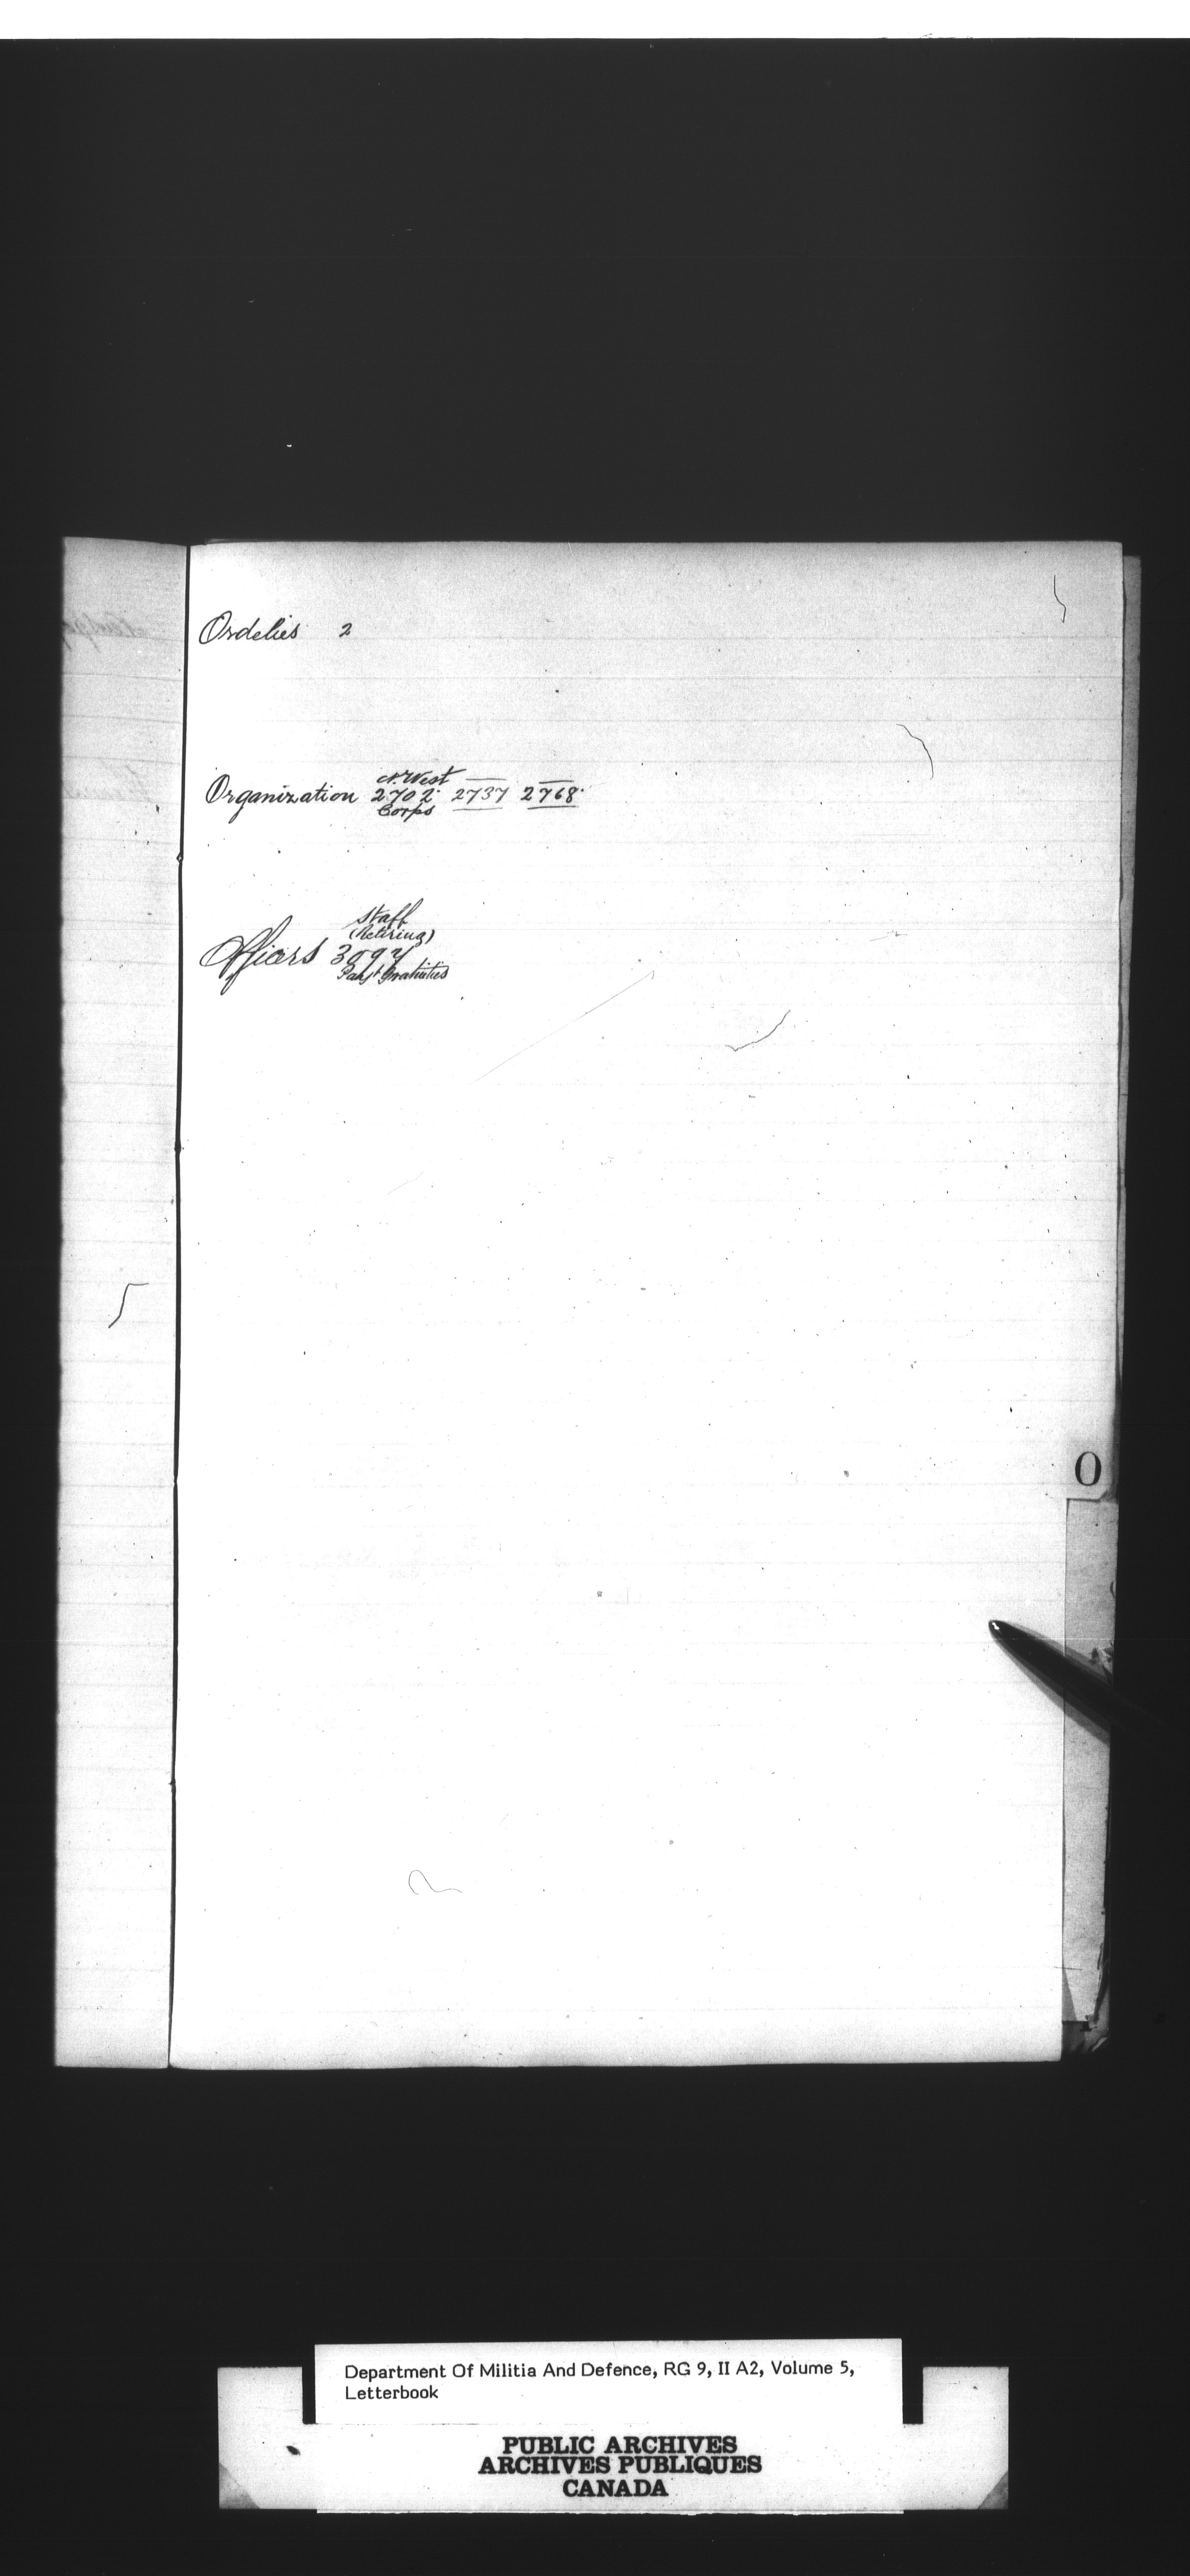 Ordelies 2
N. West
Organization 2702 2737 2768
Corps
Staff
(Retiring)
Officers
Gratuities
O
Department Of Militia And Defence, RG 9, II A2, Volume 5,
Letterbook
PUBLIC ARCHIVES
ARCHIVES PUBLIQUES
CANADA